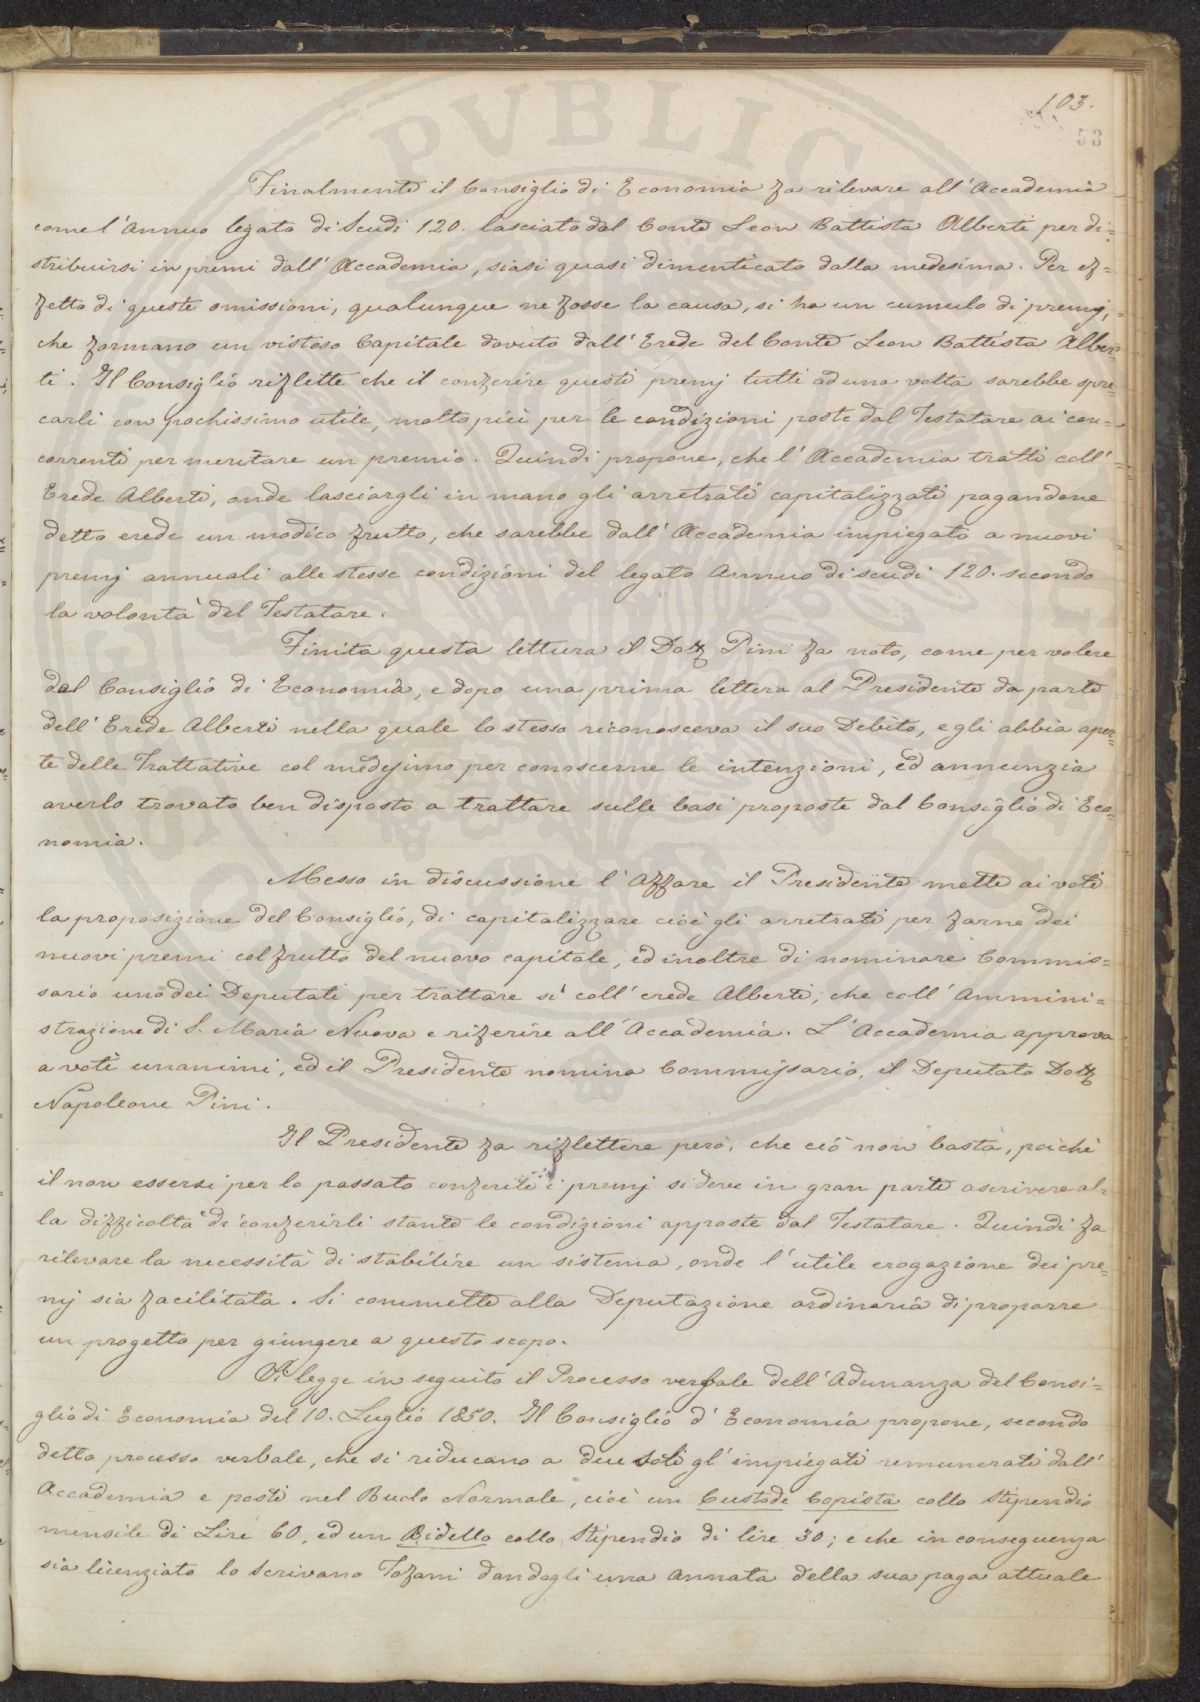 103.
53
Finalmente il Consiglio di Economia fa rilevare all'Accademia
come l'annuo legato di Scudi 120. lasciato dal Conte Leon Battista Alberti per di=
stribuirsi in premi dall'Accademia, siasi quasi dimenticato dalla medesima. Per ef=
fetto di queste omissioni, qualunque ne fosse la causa, si ha un cumulo di premj,
che formano un vistoso Capitale dovuto dall'Erede del Conte Leon Battista Alber=
ti. Il Consiglio riflette che il conferire questi premj tutti ad una volta sarebbe spre=
carli con pochissimo utile, molto più per le condizioni poste dal Testatore ai con=
correnti per meritare un premio. Quindi propone, che l'Accademia tratti coll'
Erede Alberti, onde lasciargli in mano gli arretrati capitalizzati pagandone
detto erede un modico frutto, che sarebbe dall'Accademia impiegato a nuovi
premj annuali alle stesse condizioni del legato annuo di scudi 120. secondo
la volontà del Testatore.
Finita questa lettura il Dott Pini fa noto, come per volere
del Consiglio di Economia, e dopo una prima lettera al Presidente da parte
dell'Erede Alberti nella quale lo stesso riconosceva il suo Debito, egli abbia aper=
te delle Trattative col medesimo per conoscerne le intenzioni, ed annunzia
averlo trovato ben disposto a trattare sulle basi proposte dal Consiglio di Eco=
nomia.
Messo in discussione l'Affare il Presidente mette ai voti
la proposizione del Consiglio, di capitalizzare cioè gli arretrati per farne dei
nuovi premi col frutto del nuovo capitale, ed inoltre di nominare Commis=
sario uno dei Deputati per trattare sì coll'erede Alberti, che coll'Ammini=
strazione di S. Maria Nuova e riferire all'Accademia. L'Accademia approva
a voti unanimi, ed il Presidente nomina Commissario, il Deputato Dott
Napoleone Pini.
Il Presidente fa riflettere però, che ciò non basta, poichè
il non essersi per lo passato conferiti i premj si deve in gran parte ascrivere al=
la difficoltà di conferirli stante le condizioni apposte dal Testatore. Quindi fa
rilevare la necessità di stabilire un sistema, onde l'utile erogazione dei pre=
mj sia facilitata. Si commette alla Deputazione ordinaria di proporre
un progetto per giungere a questo scopo.
Si legge in seguito il Processo verbale dell'Adunanza del Consi=
glio di Economia del 10. Luglio 1850. Il Consiglio d'Economia propone, secondo
detto processo verbale, che si riducano a due soli gl'impiegati remunerati dall'
Accademia e posti nel Ruolo Normale, cioè un Custode Copista collo Stipendio
mensile di Lire 60, ed un Bidello collo Stipendio di lire 30; e che in conseguenza
sia licenziato lo Scrivano Tofani dandogli una annata della sua paga attuale